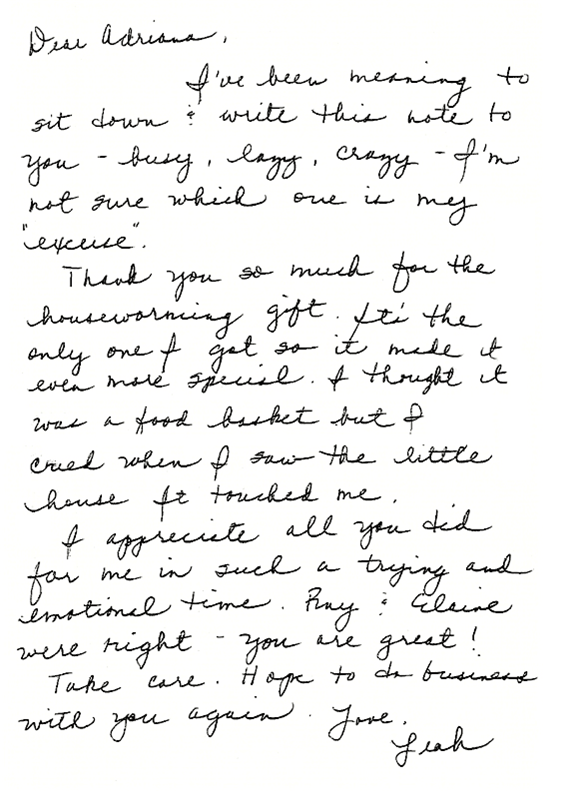 Dear Adriana,
I've been meaning to
sit down & write this note to
you - busy, lazy, crazy - I'm
not sure which one is my
"excuse".
Thank you so much for the
housewarming gift. It's the
only one I got so it made it
even more special. I thought it
was a food basket but I
cried when I saw the little
house It touched me.
I appreciate all you did
for me in such a trying and
emotional time. & Elaine
were right - you are great!
Take care. Hope to do business
with you again. Love,
Leah